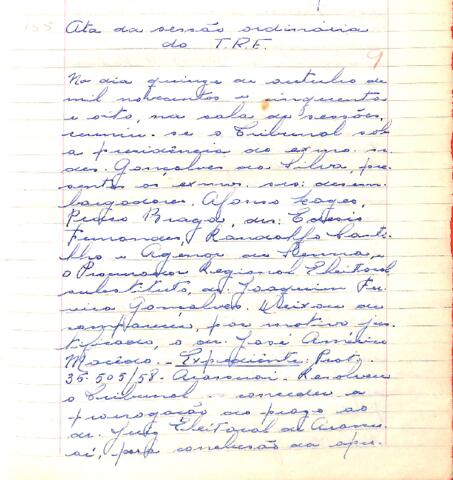 155 Ata da sessão ordinária
do T.R.E.
No dia quinze de outubro de
mil novecentos e cinquenta
e oito, na sala de sessões,
reuniu-se o Tribunal sob
a presidência do exmo. sr.
des. Gonçalves da Silva, pre-
sentes os exmos. srs: desem-
bargadores. Afonso Lages,
Pedro Braga, drs. Edesio
Fernandes, Randolfo Santi-
lho e Agenor de Senna, e
o Procurador Regional Eleitoral
substituto, dr. Joaquim Fer-
reira Gonçalves. Deixou de
comparecer, por motivo jus-
tificado, o dr. José Américo
Macêdo. - Expediente: Prot.
35.505/58 - Araçuaí - Resolveu
o Tribunal conceder a
prorrogação do prazo ao
dr. Juiz Eleitoral de Araçu-
aí, para conclusão da apu-